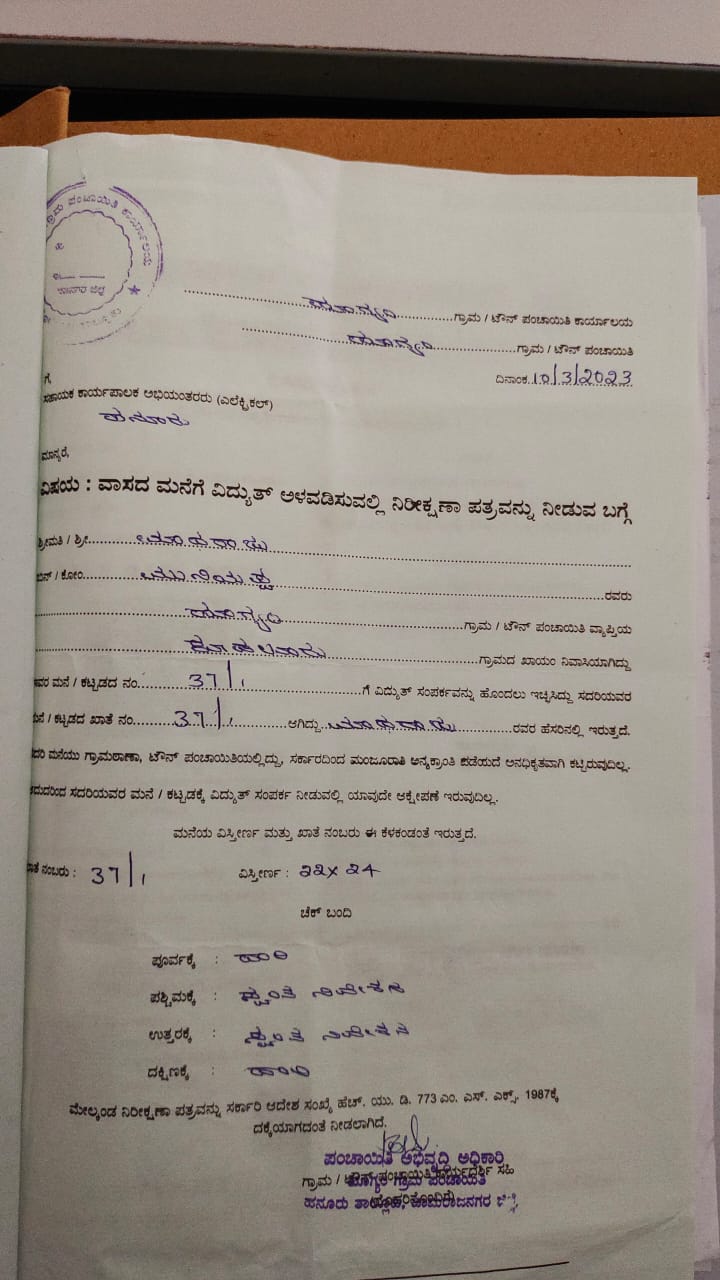 ಗ್ರಾಮ ಪಂಚಾಯಿತಿ ಕಾರ್ಯಾಲಯ
ಗ್ರಾಮ / ಟೌನ್ ಪಂಚಾಯಿತಿ ಕಾರ್ಯಾಲಯ
ಗ್ರಾಮ / ಟೌನ್ ಪಂಚಾಯಿತಿ
ದಿನಾಂಕ 10/3/2023
ಗೆ,
ಸಹಾಯಕ ಕಾರ್ಯಪಾಲಕ ಅಭಿಯಂತರರು (ಎಲೆಕ್ಟ್ರಿಕಲ್)
ಹನೂರು
ಮಾನ್ಯರೆ,
ವಿಷಯ : ವಾಸದ ಮನೆಗೆ ವಿದ್ಯುತ್ ಅಳವಡಿಸುವಲ್ಲಿ ನಿರೀಕ್ಷಣಾ ಪತ್ರವನ್ನು ನೀಡುವ ಬಗ್ಗೆ
ಶ್ರೀಮತಿ / ಶ್ರೀ
ಬಿನ್ / ಕೋಂ ಮುನಿಯಪ್ಪ ರವರು
ಗ್ರಾಮ / ಟೌನ್ ಪಂಚಾಯಿತಿ ವ್ಯಾಪ್ತಿಯ
ಗ್ರಾಮದ ಖಾಯಂ ನಿವಾಸಿಯಾಗಿದ್ದು
ಮನೆ / ಕಟ್ಟಡದ ನಂ. 37/1 ಗೆ ವಿದ್ಯುತ್ ಸಂಪರ್ಕವನ್ನು ಹೊಂದಲು ಇಚ್ಛಿಸಿದ್ದು ಸದರಿಯವರ
ಮನೆ / ಕಟ್ಟಡದ ಖಾತೆ ನಂ. 37/1 ಆಗಿದ್ದು ರವರ ಹೆಸರಿನಲ್ಲಿ ಇರುತ್ತದೆ.
ಸದರಿ ಮನೆಯು ಗ್ರಾಮಠಾಣಾ, ಟೌನ್ ಪಂಚಾಯಿತಿಯಲ್ಲಿದ್ದು, ಸರ್ಕಾರದಿಂದ ಮಂಜೂರಾತಿ ಅನ್ಯಕ್ರಾಂತಿ ಪಡೆಯದೆ ಅನಧಿಕೃತವಾಗಿ ಕಟ್ಟಿರುವುದಿಲ್ಲ.
ಆದುದರಿಂದ ಸದರಿಯವರ ಮನೆ / ಕಟ್ಟಡಕ್ಕೆ ವಿದ್ಯುತ್ ಸಂಪರ್ಕ ನೀಡುವಲ್ಲಿ ಯಾವುದೇ ಆಕ್ಷೇಪಣೆ ಇರುವುದಿಲ್ಲ.
ಮನೆಯ ವಿಸ್ತೀರ್ಣ ಮತ್ತು ಖಾತೆ ನಂಬರು ಈ ಕೆಳಕಂಡಂತೆ ಇರುತ್ತದೆ.
ಖಾತೆ ನಂಬರು : 37/1 ವಿಸ್ತೀರ್ಣ : 22x24
ಚೆಕ್ ಬಂದಿ
ಪೂರ್ವಕ್ಕೆ :
ಪಶ್ಚಿಮಕ್ಕೆ : ಸ್ವಂತ ನಿವೇಶನ
ಉತ್ತರಕ್ಕೆ : ಸ್ವಂತ ನಿವೇಶನ
ದಕ್ಷಿಣಕ್ಕೆ :
ಮೇಲ್ಕಂಡ ನಿರೀಕ್ಷಣಾ ಪತ್ರವನ್ನು ಸರ್ಕಾರಿ ಆದೇಶ ಸಂಖ್ಯೆ ಹೆಚ್. ಯು. ಡಿ. 773 ಎಂ. ಎಸ್. ಎಕ್ಸ್. 1987ಕ್ಕೆ
ದಕ್ಕೆಯಾಗದಂತೆ ನೀಡಲಾಗಿದೆ.
ಪಂಚಾಯಿತಿ ಅಭಿವೃದ್ಧಿ ಅಧಿಕಾರಿ
ಗ್ರಾಮ / ಟೌನ್ ಪಂಚಾಯಿತಿ ಕಾರ್ಯದರ್ಶಿ ಸಹಿ
ಗ್ರಾಮ ಪಂಚಾಯಿತಿ
ಹನೂರು ತಾಲ್ಲೂಕು, ಚಾಮರಾಜನಗರ ಜಿಲ್ಲೆ